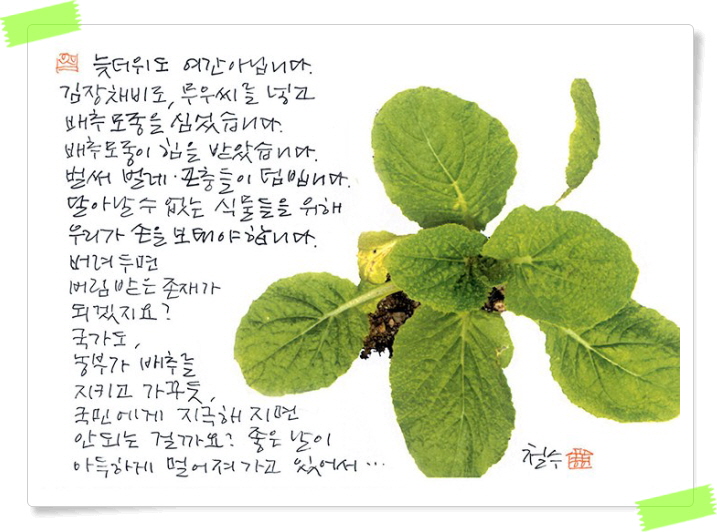 늦더위도 여간아닙니다.
김장채비로, 무우씨를 넣고
배추모종을 심었습니다.
배추모종이 힘을 받았습니다.
벌써 벌레·곤충들이 덤빕니다.
달아날 수 없는 식물들을 위해
우리가 손을 보태야합니다.
버려두면
버림받은 존재가
되겠지요?
국가도,
농부가 배추를
지키고 가꾸듯,
국민에게 지극해지면
안되는 걸까요? 좋은 날이
아득하게 멀어져가고 있어서…
철수